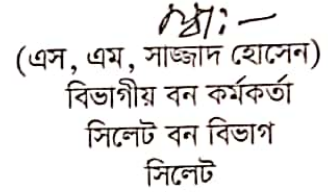 স্বাঃ—
(এস, এম, সাজ্জাদ হোসেন)
বিভাগীয় বন কর্মকর্তা
সিলেট বন বিভাগ
সিলেট